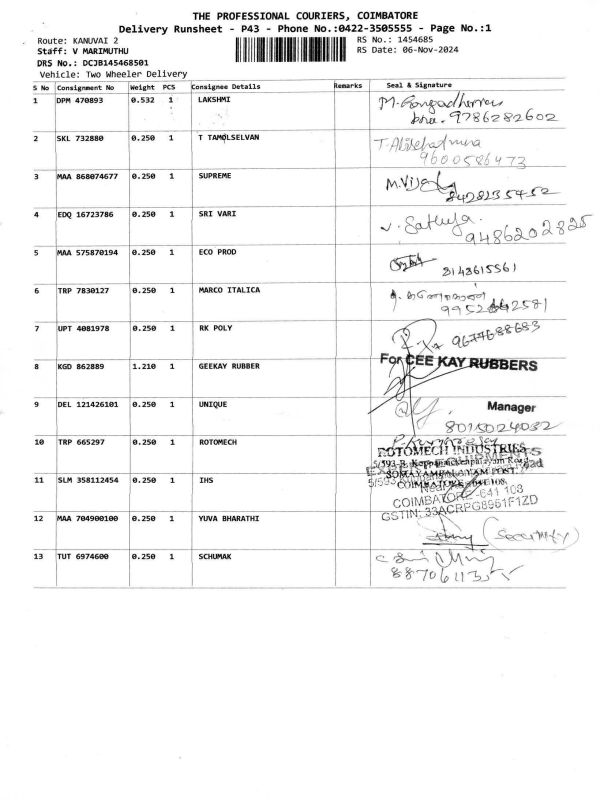 THE PROFESSIONAL COURIERS, COIMBATORE
Delivery Runsheet - P43 - Phone No.:0422-3505555 - Page No.:1
Route: KANUVAI 2
RS No.: 1454685
Staff: V MARIMUTHU
RS Date: 06-Nov-2024
DRS No.: DCJB145468501
Vehicle: Two Wheeler Delivery
S No Consignment No Weight PCS Consignee Details Remarks Seal & Signature
1 DPM 470893 0.532 1 LAKSHMI
9786282602
2 SKL 732880 0.250 1 T TAMOLSELVAN
9600586473
3 MAA 868074677 0.250 1 SUPREME
8428235452
4 EDQ 16723786 0.250 1 SRI VARI
V. Sathya.
9486202825
5 MAA 575870194 0.250 1 ECO PROD
8148615561
6 TRP 7830127 0.250 1 MARCO ITALICA
7 UPT 4081978 0.250 1 RK POLY
9677688683
8 KGD 862889 1.210 1 GEEKAY RUBBER
For GEE KAY RUBBERS
9 DEL 121426101 0.250 1 UNIQUE
Manager
8015024032
10 TRP 665297 0.250 1 ROTOMECH
ROTOMECH INDUSTRIES
SOMAYAMPALAYAM POST
11 SLM 358112454 0.250 1 IHS
COIMBATORE -641 108
GSTIN: 33ACRPG8961F1ZD
12 MAA 704900100 0.250 1 YUVA BHARATHI
(Security)
13 TUT 6974600 0.250 1 SCHUMAK